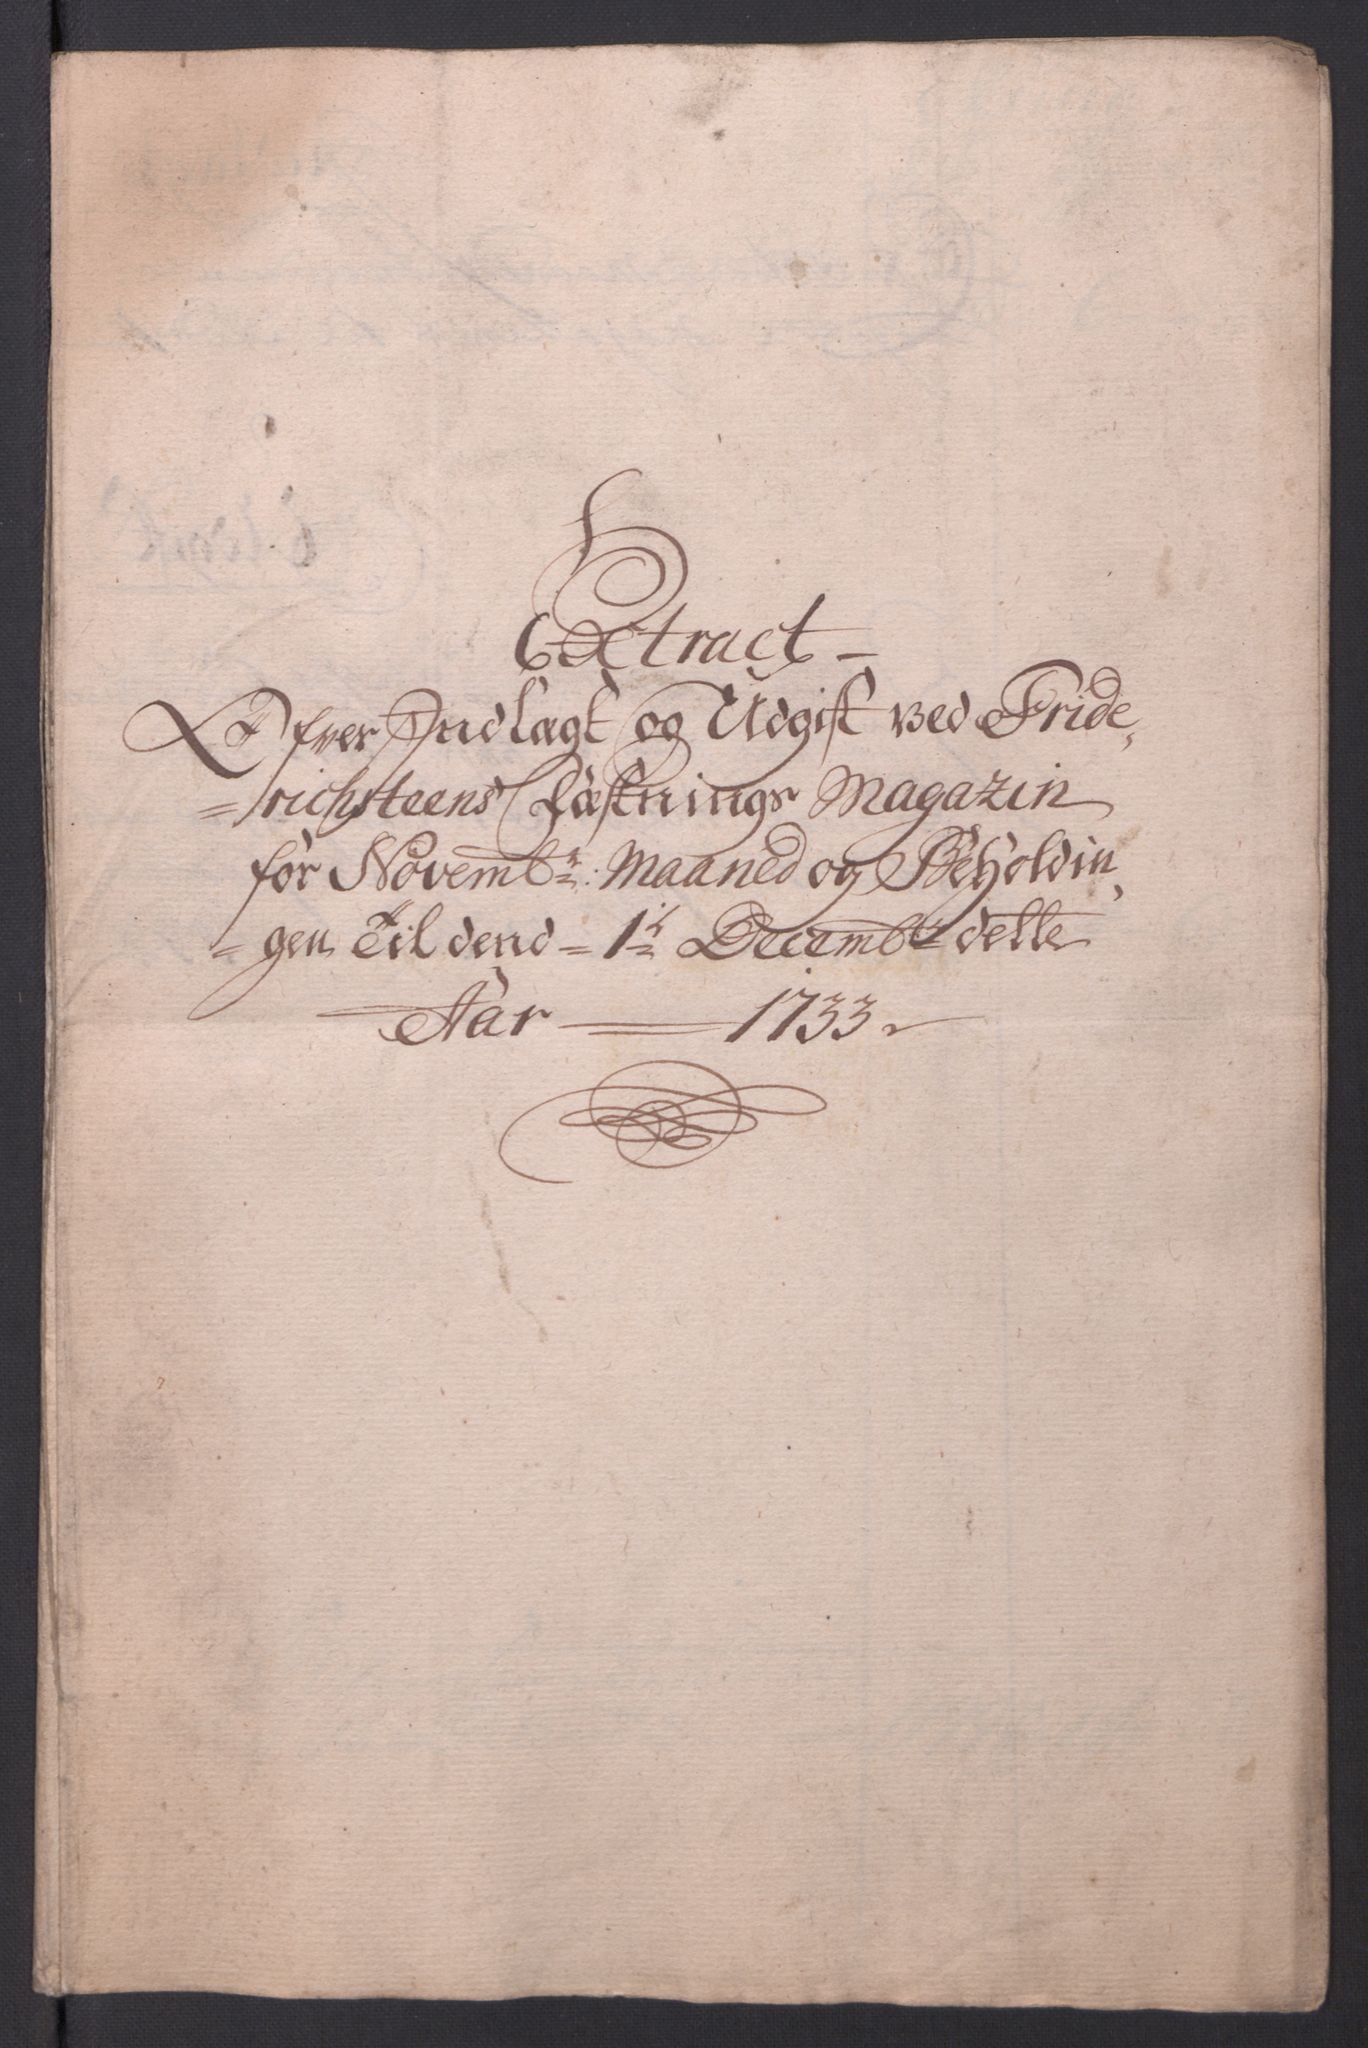 Extract –
Øfver Indlagt og Udgift ved Fride,
=richsteens Fæstnings Magazin
for Novembr: Maaned og Beholdin,
=gen Til dend = 1te Decembr dette
Aar — 1733.